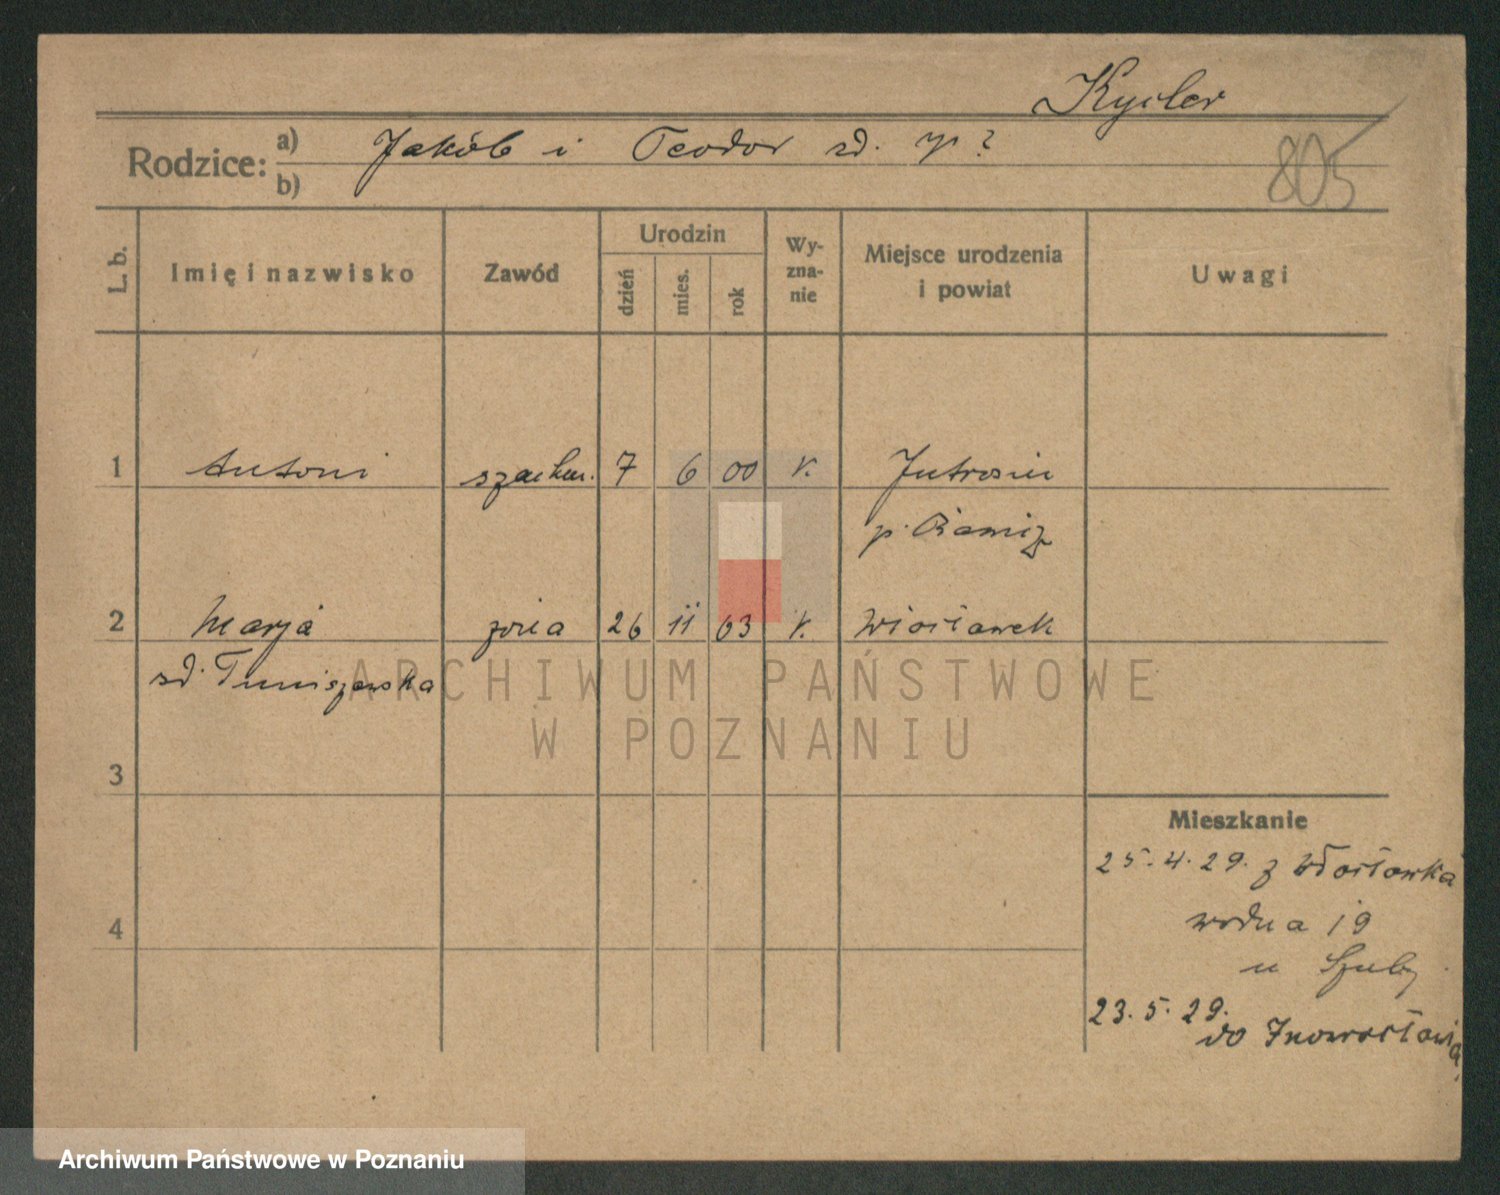 Kycler
Rodzice: a) Jakób i Teodor zd. ?
b)
805
L. b. Imię i nazwisko Zawód Urodzin dzień mies. rok Wyznanie Miejsce urodzenia i powiat Uwagi
1 Antoni 7 6 00 k. Jutrosin
p.
2 Marja żona 26 11 03 k.
zd.
3
Mieszkanie
25.4.29. z
4 wodna 19
u
23.5.29.
do Inowrocławia
ARCHIWUM PAŃSTWOWE
W POZNANIU
Archiwum Państwowe w Poznaniu